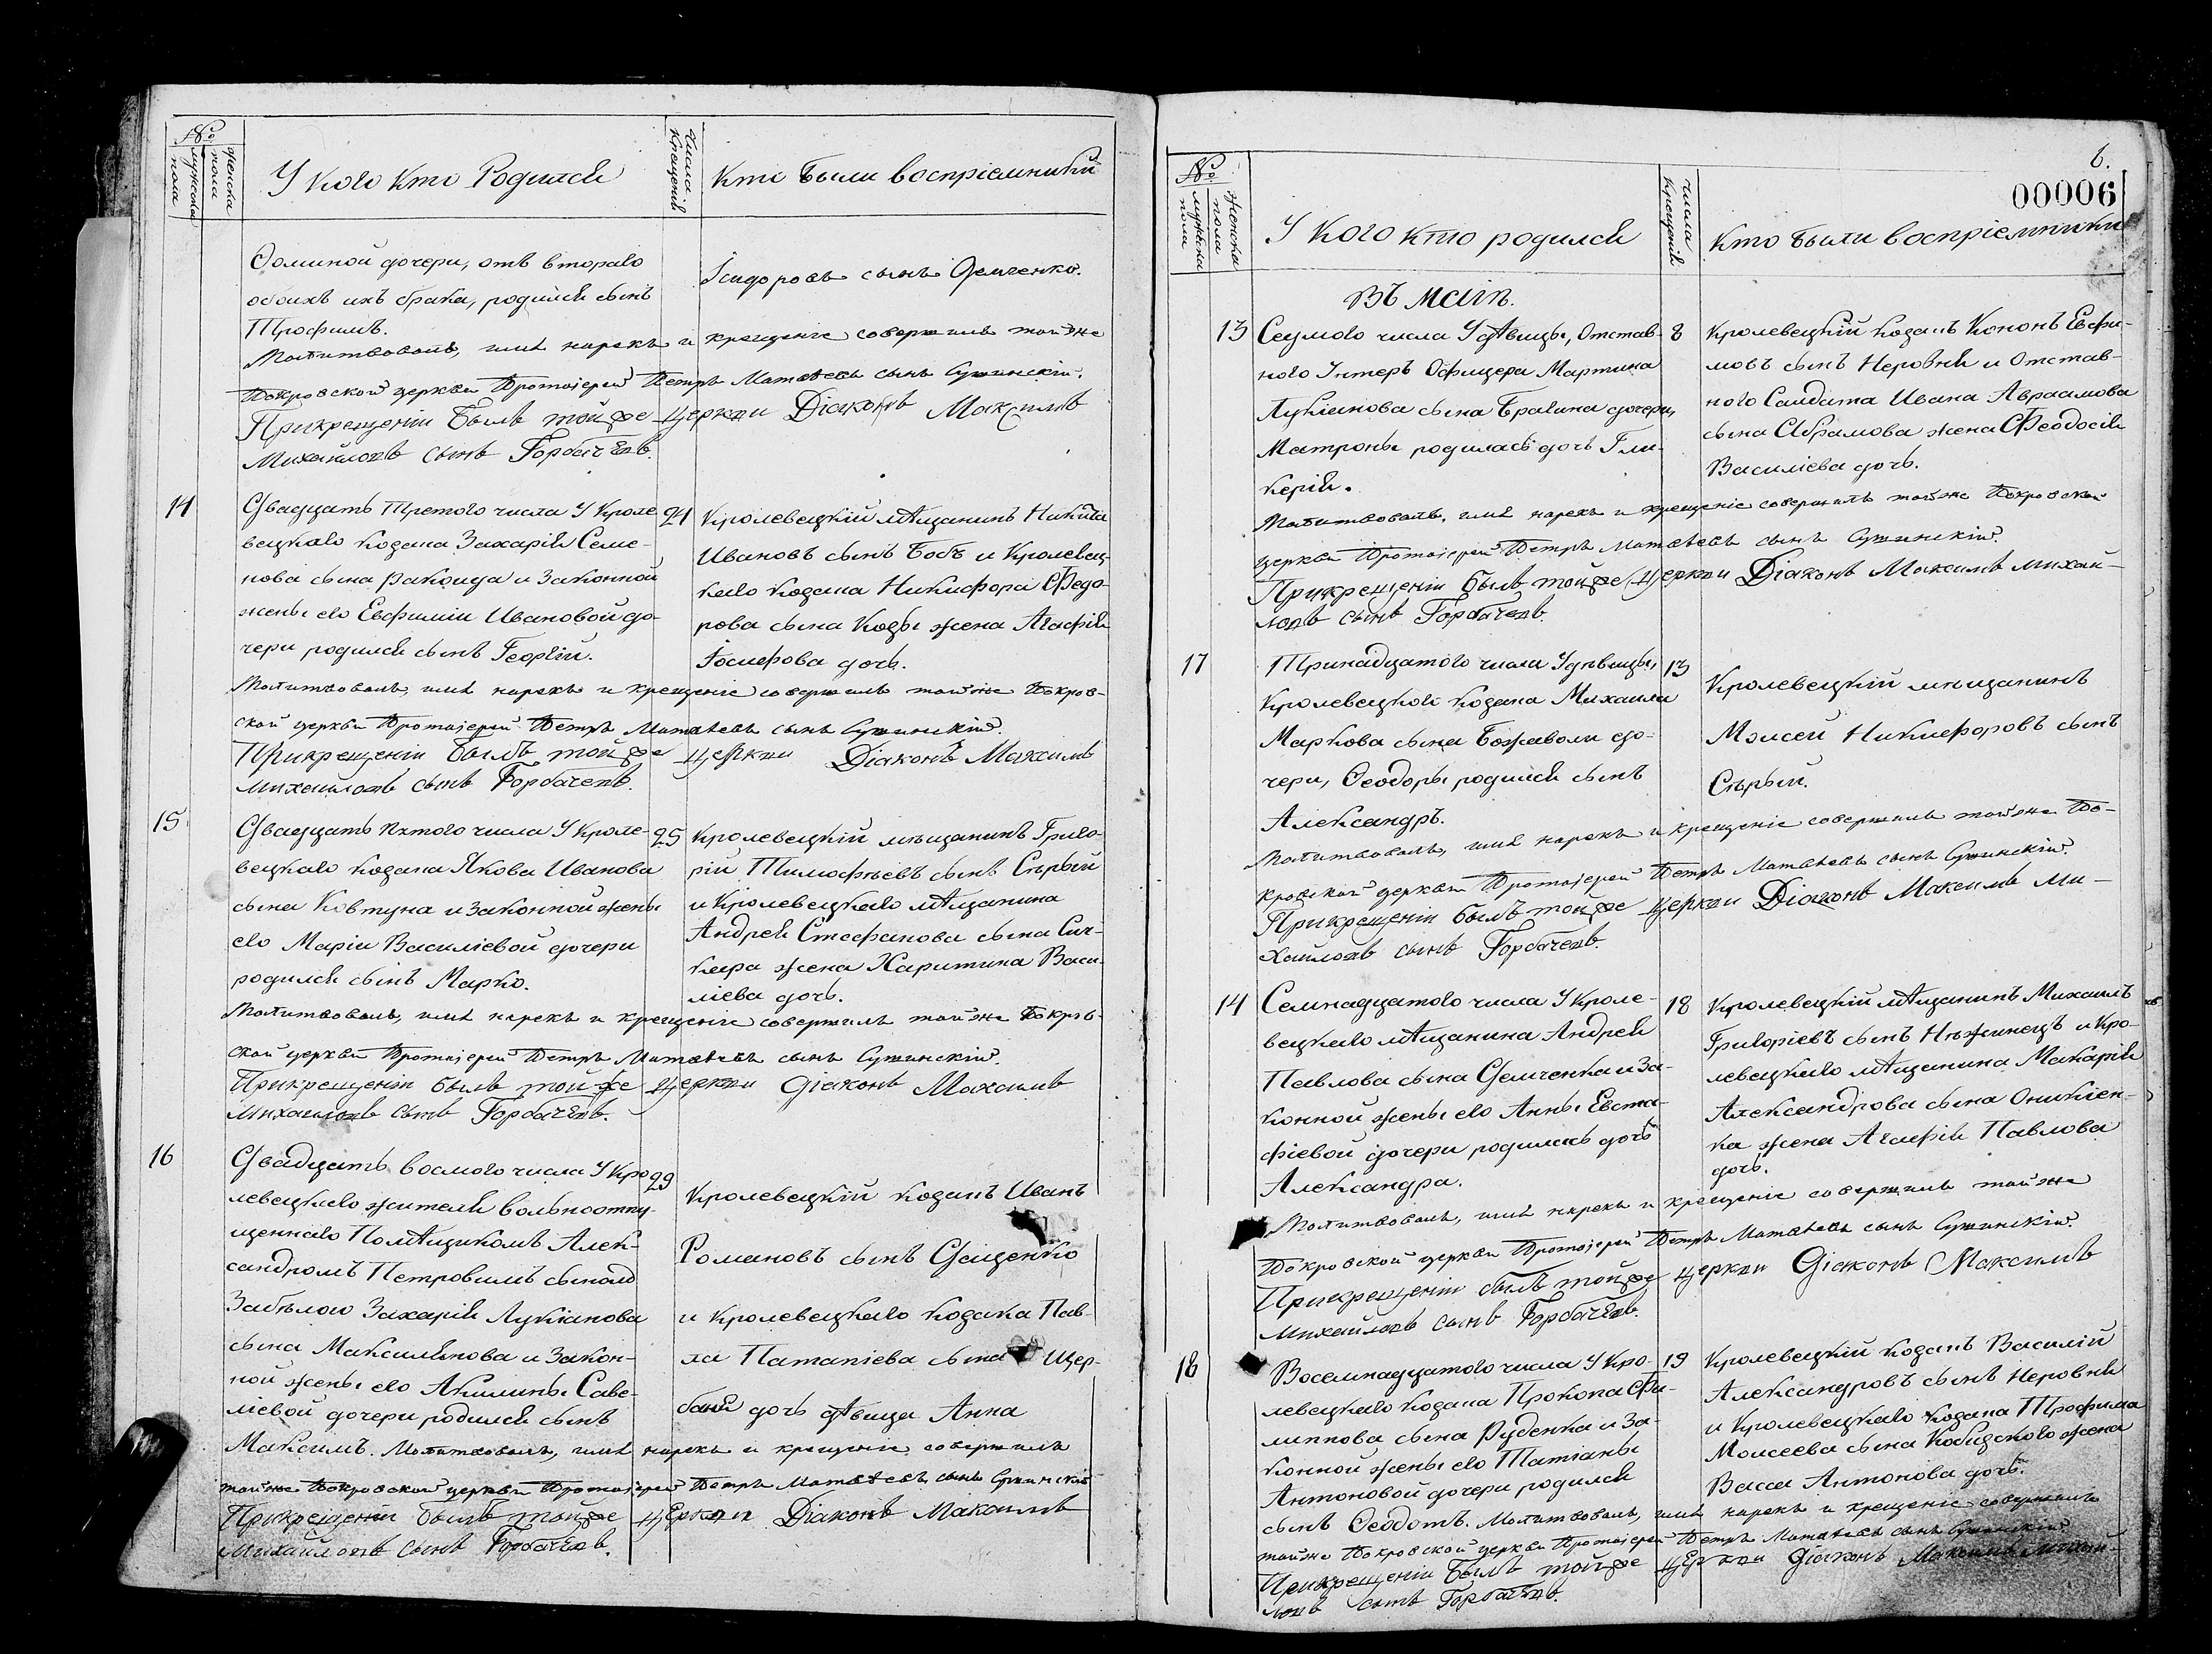 №
мужеска пола
женска пола
У кого кто Родился
Числа Крещенія
Кто были воспріемники
Ѳоминой дочери, отъ втораго
обоихъ ихъ брака, родился сынъ
Трофимъ.
Ісидоровъ сынъ Демченко.
Молитвовалъ, имя нарекъ и крещеніе совершилъ тойже
Покровской церкви Протоіерей Петръ Матвѣевъ сынъ Сушинскій.
Прикрещеніи былъ тойже церкви Діаконъ Максимъ
Михайловъ сынъ Горбачевъ.
14
Двадцать Третого числа У Кроле
вецкаго козака Захарія Семе-
нова сына Ракоида и Законной
жены его Евфиміи Ивановой до-
чери родился сынъ Георгій.
24
Кролевецкій мѣщанинъ Никита
Ивановъ сынъ Бобъ и Кролевец-
каго козака Никифора Федо-
рова сына Козы жена Агафія
Іосифова дочь.
Молитвовалъ, имя нарекъ и крещеніе совершилъ тойже Покров-
ской церкви Протоіерей Петръ Матвѣевъ сынъ Сушинскій.
Прикрещеніи былъ тойже церкви Діаконъ Максимъ
Михайловъ сынъ Горбачевъ.
15
Двадцать пятого числа У Кроле-
вецкаго козака Якова Иванова
сына Ковтуна и Законной жены
его Маріи Василіевой дочери
родился сынъ Марко.
25
Кролевецкій мѣщанинъ Григо-
рій Тимофѣевъ сынъ Сѣрый
и Кролевецкаго мѣщанина
Андрея Стефанова сына Сич-
кара жена Харитина Васи-
ліева дочь.
Молитвовалъ, имя нарекъ и крещеніе совершилъ тойже Покров-
ской церкви Протоіерей Петръ Матвѣевъ сынъ Сушинскій
Прикрещеніи былъ тойже церкви Діаконъ Максимъ
Михайловъ сынъ Горбачевъ.
16
Двадцать восмого числа У Кро
левецкаго жителя вольноотпу-
щеннаго Помѣщикомъ Алек-
сандромъ Петровимъ сыномъ
Забѣлою Захарія Лукіанова
сына Максимѣнкова и Закон-
ной жены его Акилины Саве-
ліевой дочери родился сынъ
Максимъ.
29
Кролевецкій козакъ Иванъ
Романовъ сынъ Ященко
и Кролевецкаго козака Пав-
ла Патапіева сына Щер-
баня дочь дѣвица Анна
Молитвовалъ, имя нарекъ и крещеніе совершилъ
тойже Покровской церкви Протоіерей Петръ Матвѣевъ сынъ Сушинскій
Прикрещеніи былъ тойже церкви Діаконъ Максимъ
Михайловъ сынъ Горбачевъ.
6.
00006
№
мужеска пола
женска пола
У кого кто родился
Числа крещенія
Кто были воспріемники
Въ Маіѣ.
13
Седмого числа У дѣвицы, Отстав-
ного Унтеръ Офицера Мартина
Лукіянова сына Брагина дочери,
Матроны родилась дочь Гли-
керія.
8
Кролевецкій козакъ Кононъ Евфи-
мовъ сынъ Неровня и Отстав-
ного Салдата Ивана Авраамова
сына Абрамова жена Феодосія
Василіева дочь.
Молитвовалъ, имя нарекъ и крещеніе совершилъ тойже Покровской
церкви Протоіерей Петръ Матвѣевъ сынъ Сушинскій.
Прикрещеніи былъ тойже церкви Діаконъ Максимъ Михай-
ловъ сынъ Горбачевъ.
17
Тринадцатого числа У дѣвицы,
Кролевецкого козака Михаила
Маркова сына Божаволи до-
чери, Ѳеодоры родился сынъ
Александръ.
13
Кролевецкій мѣщанинъ
Моисей Никифоровъ сынъ
Сѣрый.
Молитвовалъ, имя нарекъ и крещеніе совершилъ тойже По-
кровской церкви Протоіерей Петръ Матвѣевъ сынъ Сушинскій.
Прикрещеніи былъ тойже церкви Діаконъ Максимъ Ми-
хайловъ сынъ Горбачевъ.
14
Семнадцатого числа У Кроле-
вецкаго мѣщанина Андрея
Павлова сына Демченка и За-
конной жены его Анны Евста-
фіевой дочери родилась дочь
Александра.
18
Кролевецкій мѣщанинъ Михаилъ
Григоріевъ сынъ Нѣжинецъ и Кро-
левецкаго мѣщанина Макарія
Александрова сына Оникіен-
ка жена Агафія Павлова
дочь.
Молитвовалъ, имя нарекъ и крещеніе совершилъ тойже
Покровской церкви Протоіерей Петръ Матвѣевъ сынъ Сушинскій.
Прикрещеніи былъ тойже церкви Діаконъ Максимъ
Михайловъ сынъ Горбачевъ.
18
Восемнадцатого числа У Кро-
левецкаго козака Прокопа Фи-
липпова сына Руденка и За-
конной жены его Татіаны
Антоновой дочери родился
сынъ Ѳеодотъ.
19
Кролевецкій козакъ Василій
Александровъ сынъ Неровня
и Кролевецкаго козака Трофима
Моисеева сына Кобизского жена
Васса Антонова дочь.
Молитвовалъ, имя нарекъ и крещеніе совершилъ
тойже Покровской церкви Протоіерей Петръ Матвѣевъ сынъ Сушинскій
Прикрещеніи былъ тойже церкви Діаконъ Максимъ Михай-
ловъ сынъ Горбачевъ.